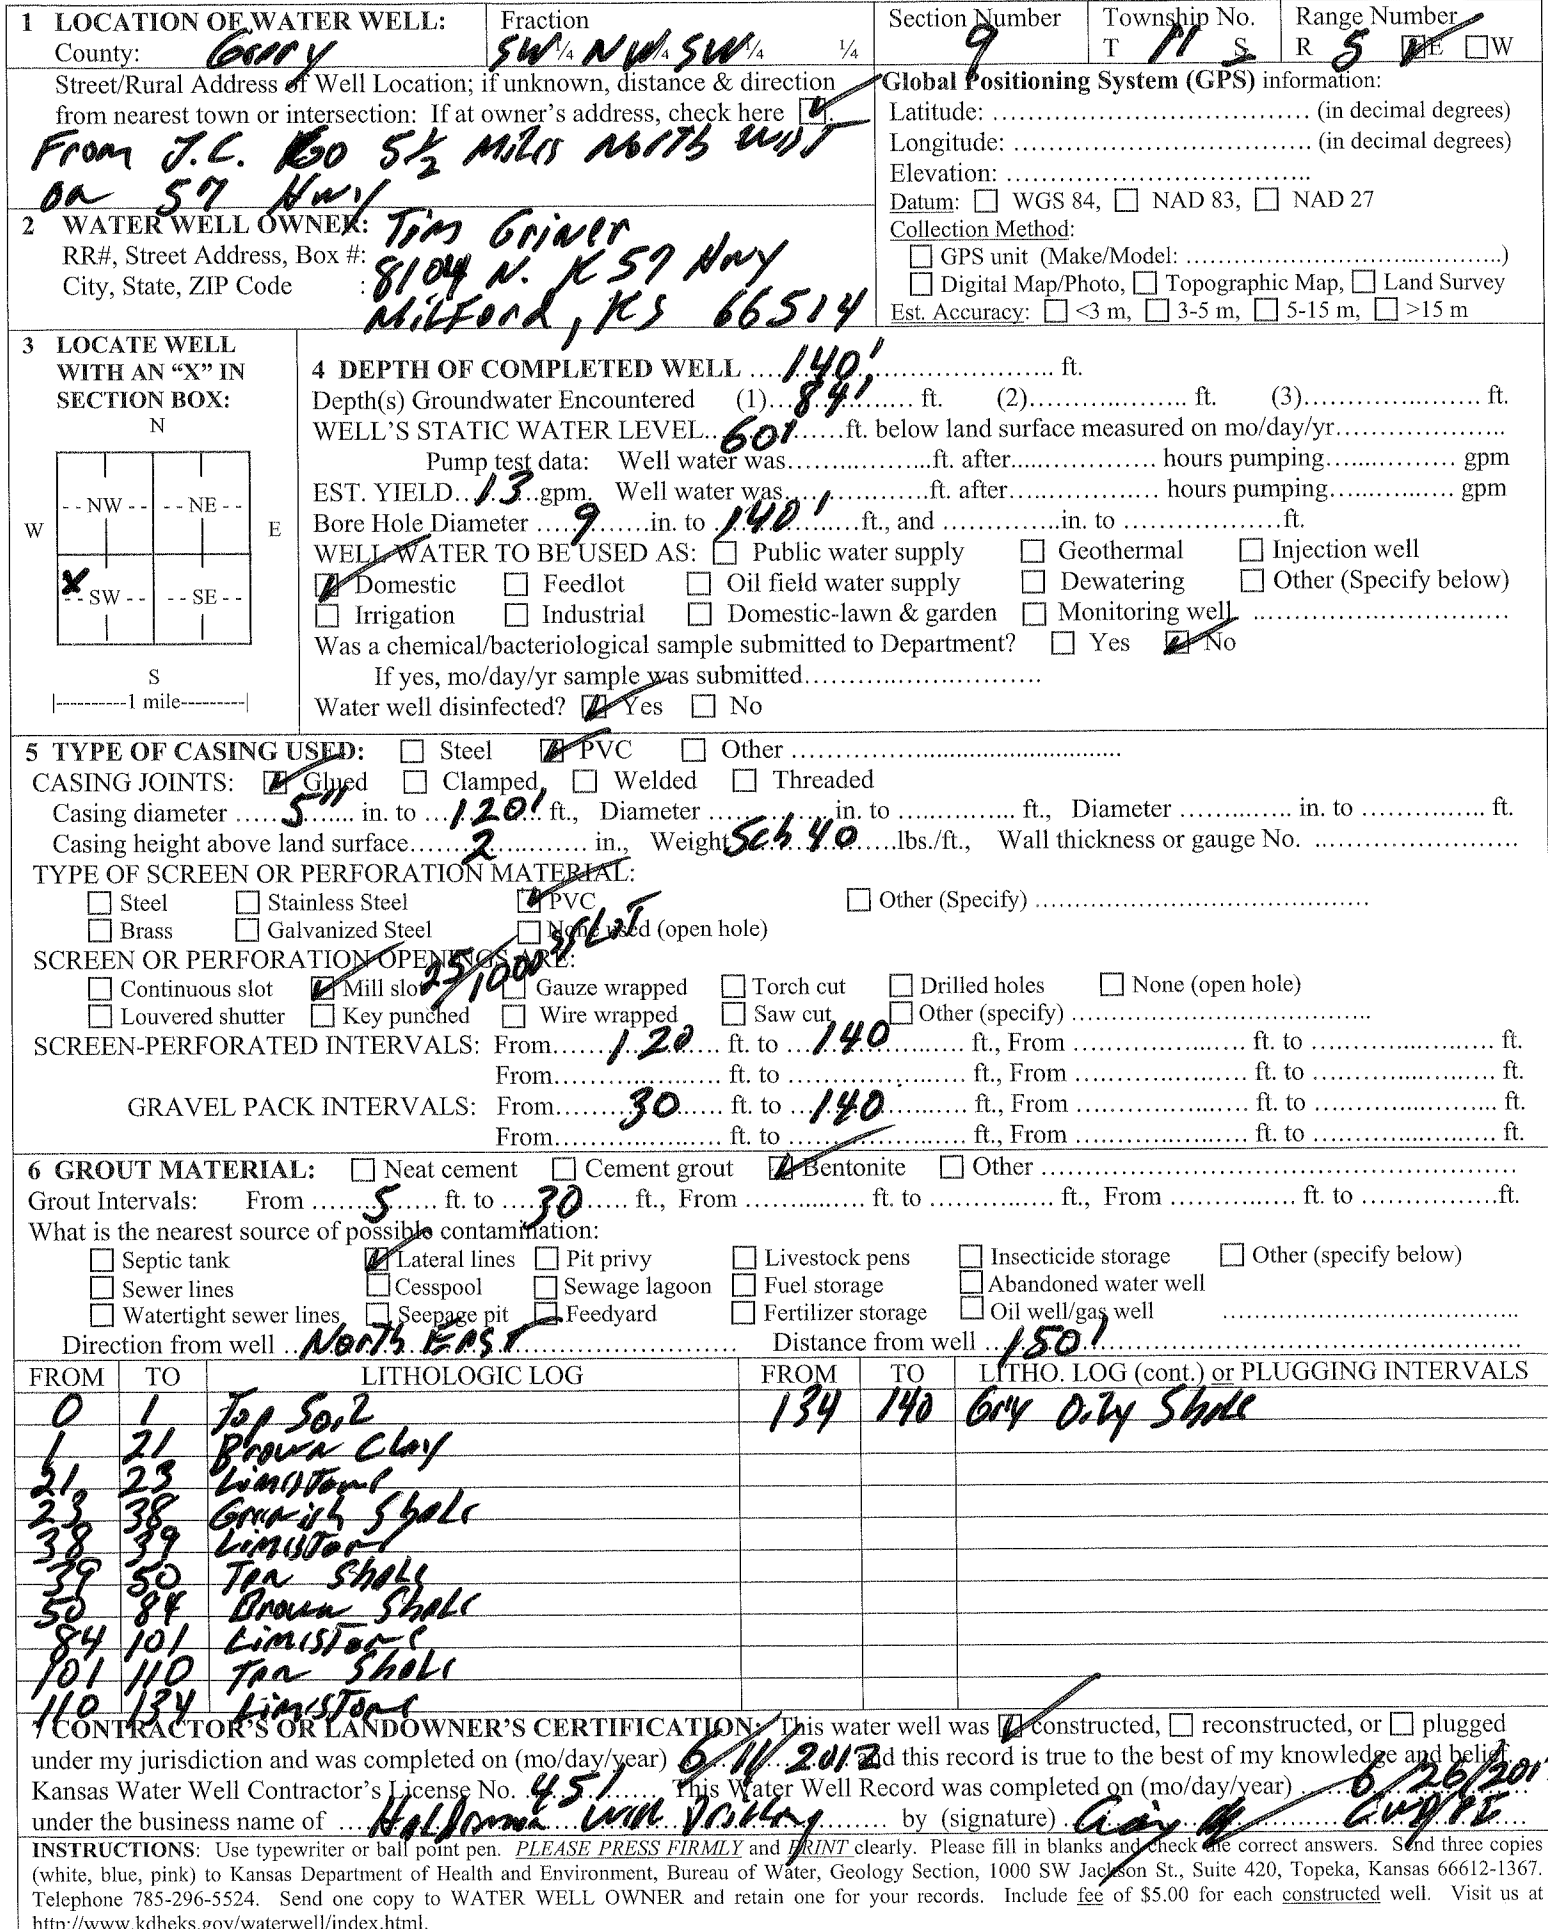 1 LOCATION OF WATER WELL: Fraction Section Number Township No. Range Number
County: Geary SW ¼ NW ¼ SW ¼ ¼ 9 T 11 S R 5 ☑E ☐W
Street/Rural Address of Well Location; if unknown, distance & direction
from nearest town or intersection: If at owner's address, check here ☑.
From J.C. Go 5½ Miles North West
on 57 Hwy
Global Positioning System (GPS) information:
Latitude: (in decimal degrees)
Longitude: (in decimal degrees)
Elevation:
Datum: ☐ WGS 84, ☐ NAD 83, ☐ NAD 27
Collection Method:
☐ GPS unit (Make/Model: )
☐ Digital Map/Photo, ☐ Topographic Map, ☐ Land Survey
Est. Accuracy: ☐ <3 m, ☐ 3-5 m, ☐ 5-15 m, ☐ >15 m
2 WATER WELL OWNER: Tim Griner
RR#, Street Address, Box #: 8104 N. K 57 Hwy
City, State, ZIP Code : Milford, KS 66514
3 LOCATE WELL
WITH AN "X" IN
SECTION BOX:
N
NW NE
W E
X
SW SE
S
1 mile
4 DEPTH OF COMPLETED WELL 140' ft.
Depth(s) Groundwater Encountered (1) 84' ft. (2) ft. (3) ft.
WELL'S STATIC WATER LEVEL 60' ft. below land surface measured on mo/day/yr
Pump test data: Well water was ft. after hours pumping gpm
EST. YIELD 13 gpm. Well water was ft. after hours pumping gpm
Bore Hole Diameter 9 in. to 140' ft., and in. to ft.
WELL WATER TO BE USED AS: ☐ Public water supply ☐ Geothermal ☐ Injection well
☑ Domestic ☐ Feedlot ☐ Oil field water supply ☐ Dewatering ☐ Other (Specify below)
☐ Irrigation ☐ Industrial ☐ Domestic-lawn & garden ☐ Monitoring well
Was a chemical/bacteriological sample submitted to Department? ☐ Yes ☑ No
If yes, mo/day/yr sample was submitted
Water well disinfected? ☑ Yes ☐ No
5 TYPE OF CASING USED: ☐ Steel ☑ PVC ☐ Other
CASING JOINTS: ☑ Glued ☐ Clamped ☐ Welded ☐ Threaded
Casing diameter 5" in. to 120' ft., Diameter in. to ft., Diameter in. to ft.
Casing height above land surface 2 in., Weight Sch 40 lbs./ft., Wall thickness or gauge No.
TYPE OF SCREEN OR PERFORATION MATERIAL:
☐ Steel ☐ Stainless Steel ☑ PVC ☐ Other (Specify)
☐ Brass ☐ Galvanized Steel ☐ None used (open hole)
SCREEN OR PERFORATION OPENINGS ARE: 25/1000 SLOT
☐ Continuous slot ☑ Mill slot ☐ Gauze wrapped ☐ Torch cut ☐ Drilled holes ☐ None (open hole)
☐ Louvered shutter ☐ Key punched ☐ Wire wrapped ☐ Saw cut ☐ Other (specify)
SCREEN-PERFORATED INTERVALS: From 120 ft. to 140 ft., From ft. to ft.
From ft. to ft., From ft. to ft.
GRAVEL PACK INTERVALS: From 30 ft. to 140 ft., From ft. to ft.
From ft. to ft., From ft. to ft.
6 GROUT MATERIAL: ☐ Neat cement ☐ Cement grout ☑ Bentonite ☐ Other
Grout Intervals: From 5 ft. to 30 ft., From ft. to ft., From ft. to ft.
What is the nearest source of possible contamination:
☐ Septic tank ☑ Lateral lines ☐ Pit privy ☐ Livestock pens ☐ Insecticide storage ☐ Other (specify below)
☐ Sewer lines ☐ Cesspool ☐ Sewage lagoon ☐ Fuel storage ☐ Abandoned water well
☐ Watertight sewer lines ☐ Seepage pit ☐ Feedyard ☐ Fertilizer storage ☐ Oil well/gas well
Direction from well North East Distance from well 150'
FROM TO LITHOLOGIC LOG FROM TO LITHO. LOG (cont.) or PLUGGING INTERVALS
0 1 Top Soil 134 140 Gry Oily Shale
1 21 Brown Clay
21 23 Limistone
23 38 Greenish Shale
38 39 Limistone
39 50 Tan Shale
50 84 Brown Shale
84 101 Limistone
101 110 Tan Shale
110 134 Limistone
7 CONTRACTOR'S OR LANDOWNER'S CERTIFICATION: This water well was ☑ constructed, ☐ reconstructed, or ☐ plugged
under my jurisdiction and was completed on (mo/day/year) 6/11/2012 and this record is true to the best of my knowledge and belief.
Kansas Water Well Contractor's License No. 451 This Water Well Record was completed on (mo/day/year) 6/26/201
under the business name of Haldeman Well Drilling by (signature)
INSTRUCTIONS: Use typewriter or ball point pen. PLEASE PRESS FIRMLY and PRINT clearly. Please fill in blanks and check the correct answers. Send three copies
(white, blue, pink) to Kansas Department of Health and Environment, Bureau of Water, Geology Section, 1000 SW Jackson St., Suite 420, Topeka, Kansas 66612-1367.
Telephone 785-296-5524. Send one copy to WATER WELL OWNER and retain one for your records. Include fee of $5.00 for each constructed well. Visit us at
http://www.kdheks.gov/waterwell/index.html.